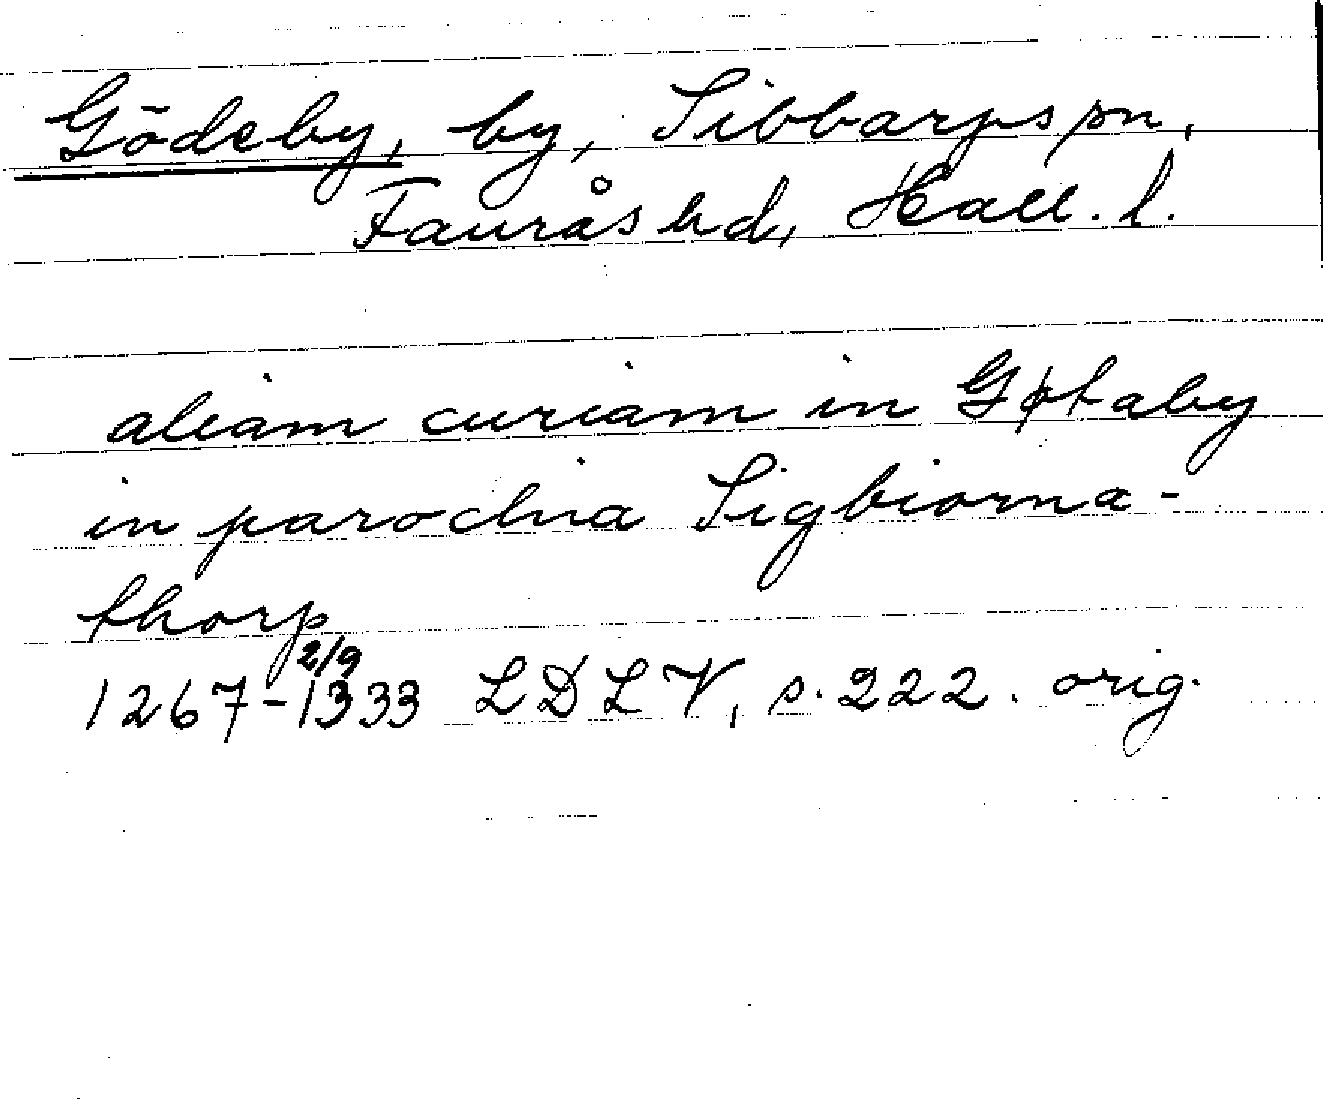 Gödeby, by, Sibbarps sn,
Faurås hd, Hall. l.
aliam curiam in Gøtaby
in parochia Sigbiorna-
thorp
2/9
1267-1333 LDLV, s. 222. orig.